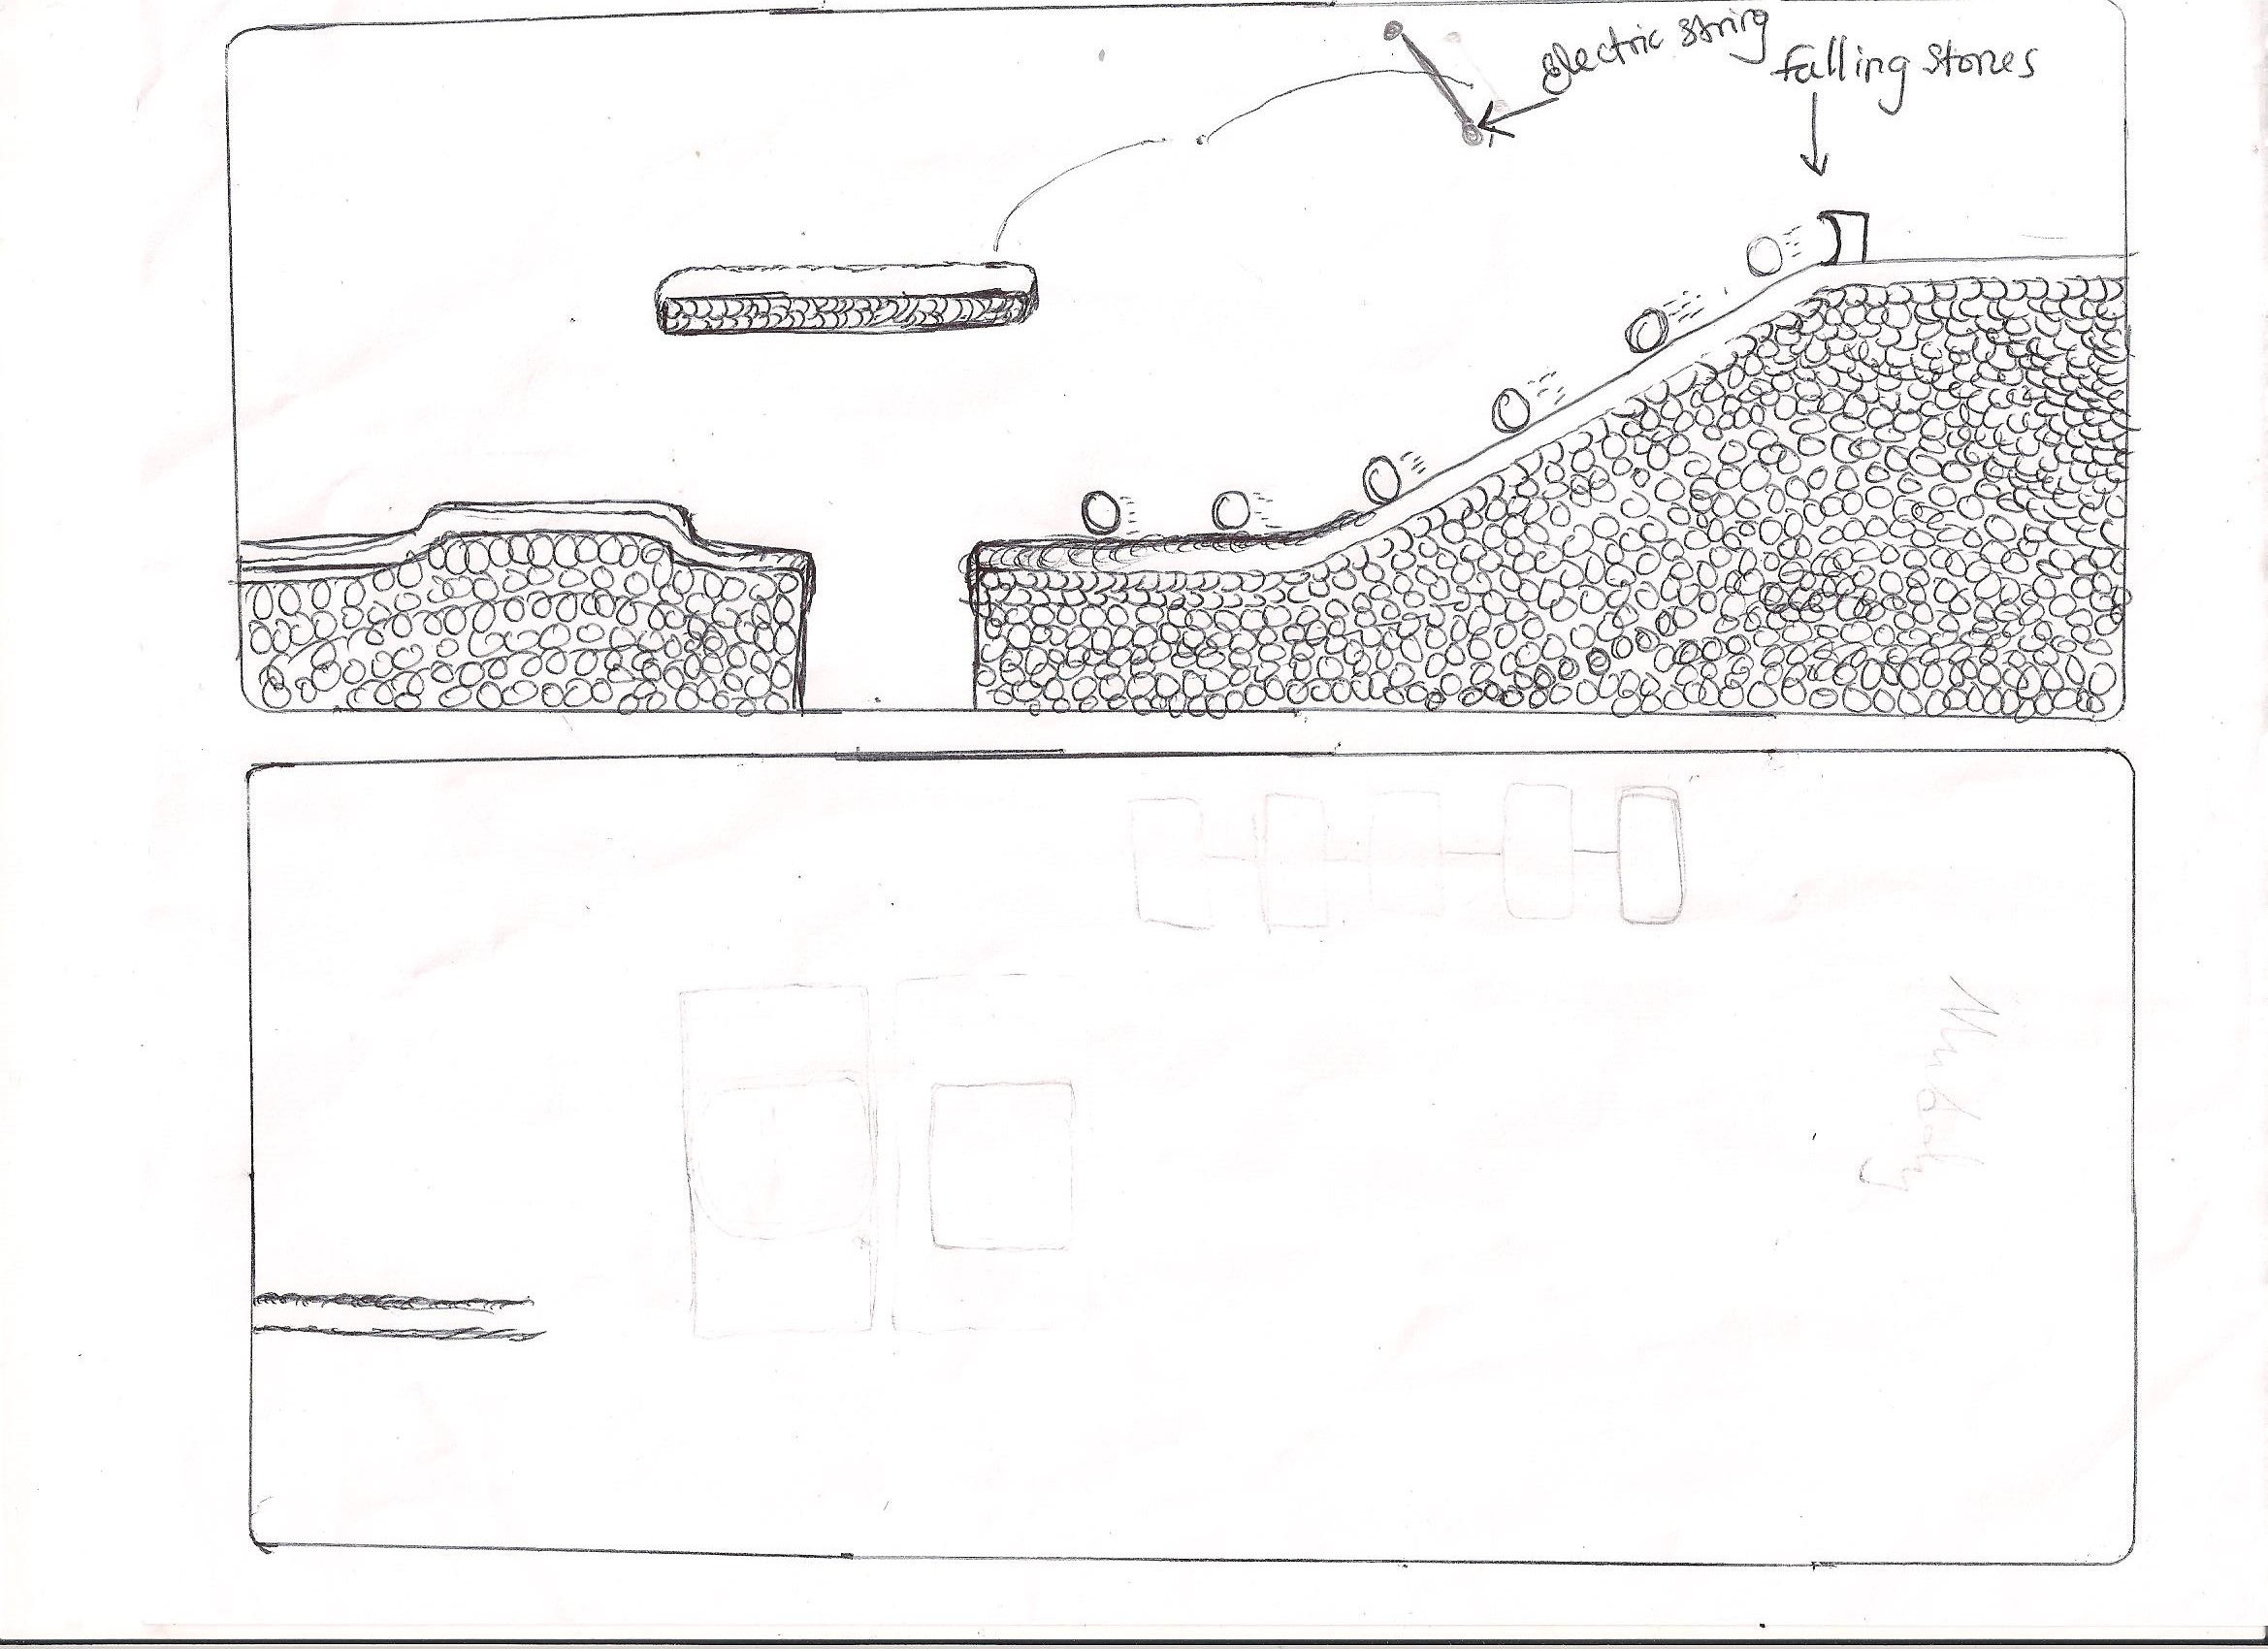 electric string
falling stones